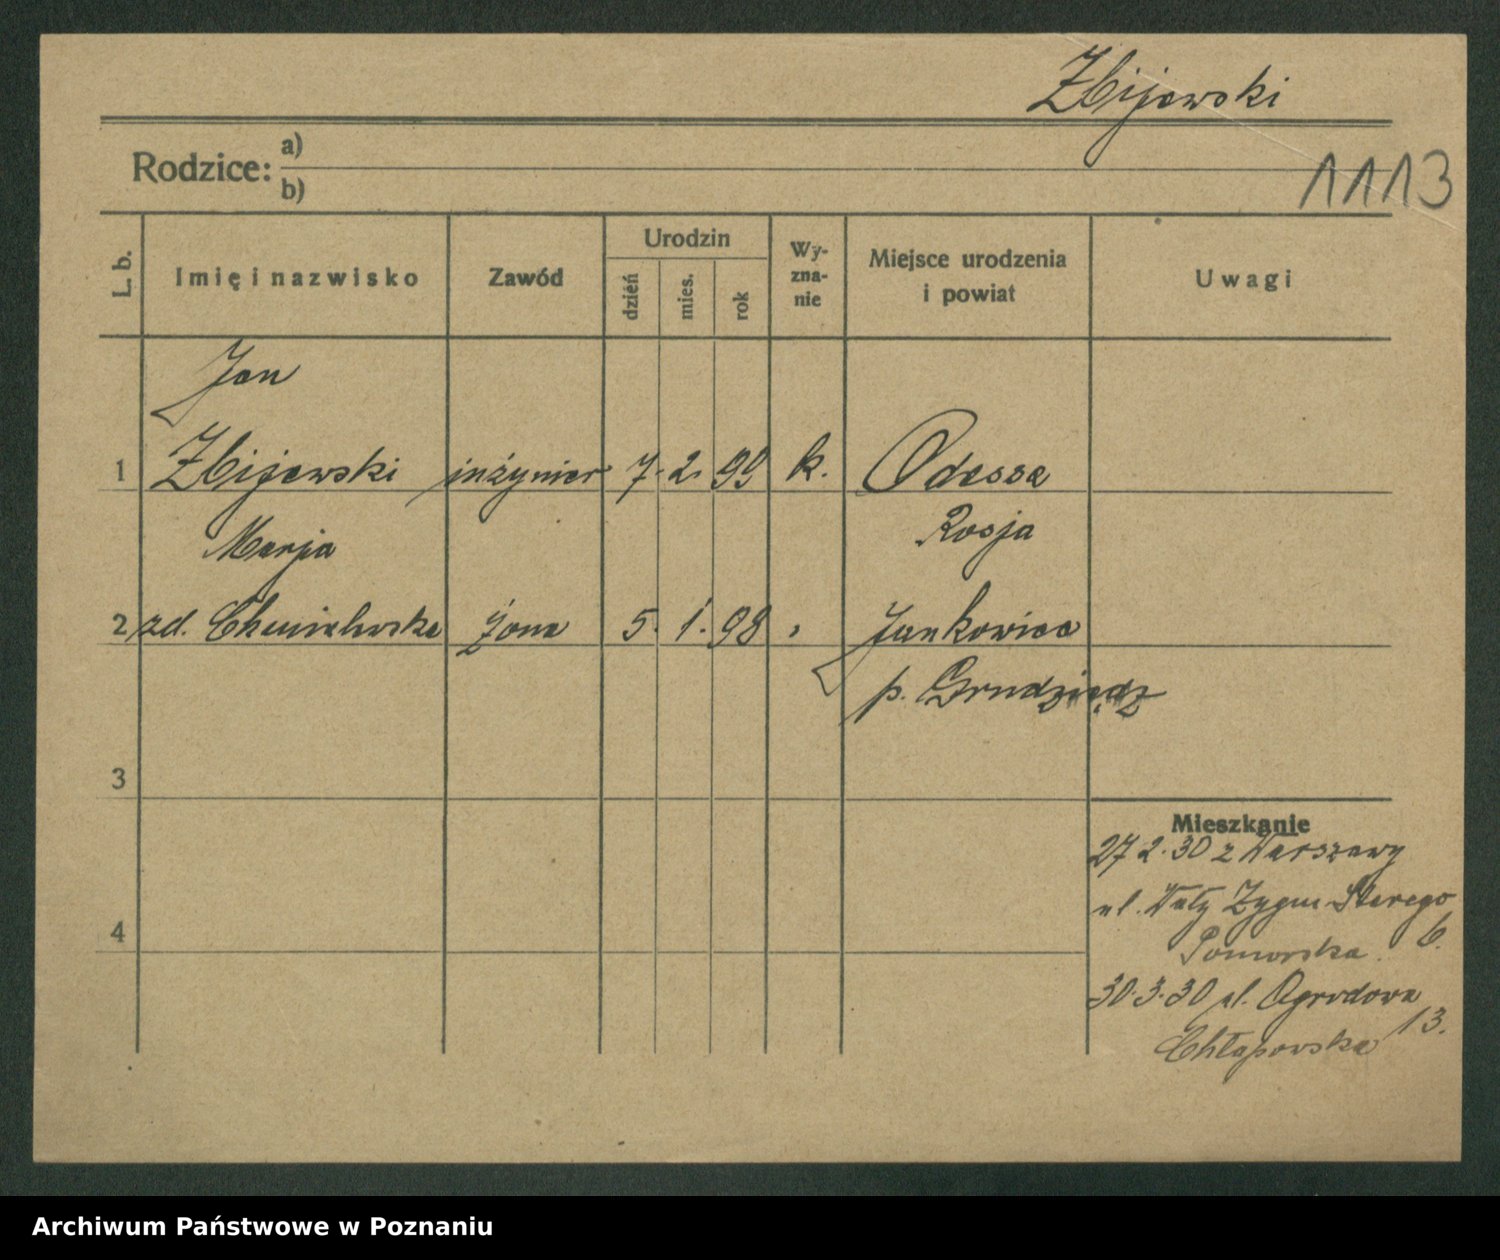 Zbijewski
Rodzice: a)
b)
1113
L. b.
Imię i nazwisko
Zawód
Urodzin
dzień
mies.
rok
Wy-
zna-
nie
Miejsce urodzenia
i powiat
Uwagi
Jan
1 Zbijewski inżynier 7. 2. 99 k. Odessa
Rosja
Marja
2 zd. Chmielewska żona 5. 1. 98 " Jankowice
p. Grudziądz
3
Mieszkanie
27 2. 30 z Warszawy
ul. Wały Zygm Starego
6.
4
Pomorska
30. 3. 30 ul. Ogrodowa
13.
Chłapowska
Archiwum Państwowe w Poznaniu